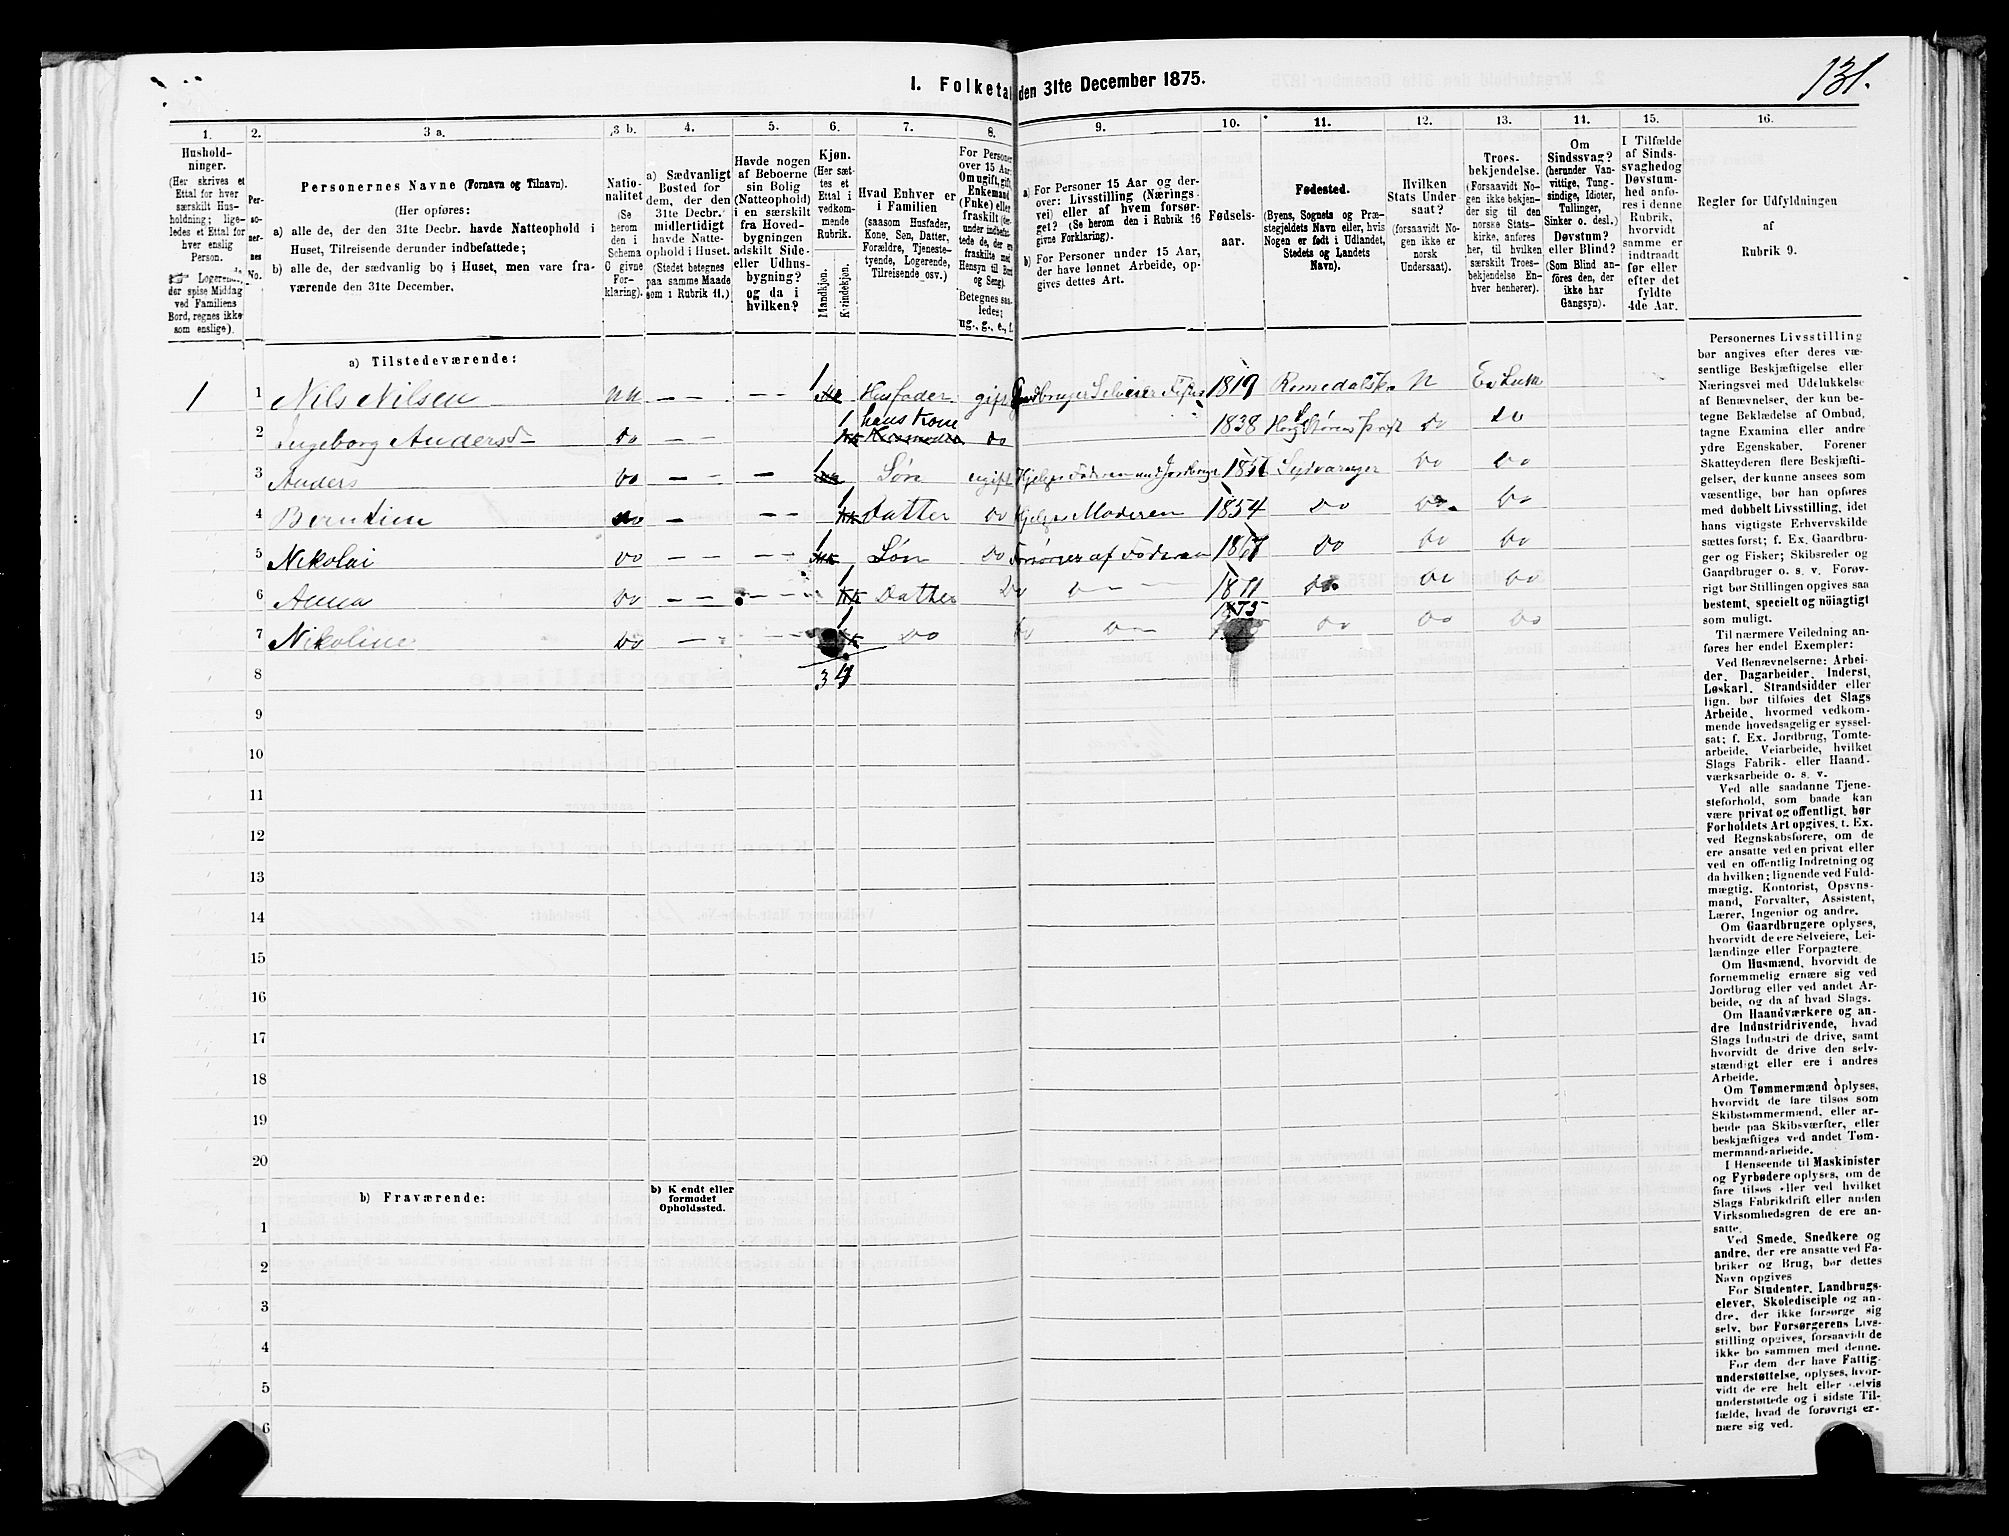 131.
I. Folketal den 31te December 1875.
1. 2. 3 a. 3 b. 4. 5. 6. 7. 8. 9. 10. 11. 12. 13. 14. 15. 16.
Hushold-
ninger.
(Her skrives et
Ettal for hver
særskilt Hus-
holdning; lige-
ledes et Ettal for
hver enslig
Person.
☞ Logerende,
der spise Middag
ved Familiens
Bord, regnes ikke
som enslige).
Per-
soner-
nes
No.
Personernes Navne (Fornavn og Tilnavn).
(Her opføres:
a) alle de, der den 31te Decbr. havde Natteophold i
Huset, Tilreisende derunder indbefattede;
b) alle de, der sædvanlig bo i Huset, men vare fra-
værende den 31te December.
Natio-
nalitet
(Se
herom
den i
Schema
C givne
For-
klaring).
a) Sædvanligt
Bosted for
dem, der den
31te Decbr.
midlertidigt
havde Natte-
ophold i Huset.
(Stedet betegnes
paa samme Maade
som i Rubrik 11.)
Havde nogen
af Beboerne
sin Bolig
(Natteophold)
i en særskilt
fra Hoved-
bygningen
adskilt Side-
eller Udhus-
bygning?
og da i
hvilken?
Kjøn.
(Her sæt-
tes et
Ettal i
vedkom-
mende
Rubrik.
Mandkjøn.
Kvindekjøn.
Hvad Enhver er
i Familien
(saasom Husfader,
Kone, Søn, Datter,
Forældre, Tjeneste-
tyende, Logerende,
Tilreisende osv.)
For Personer
over 15 Aar:
Om ugift, gift,
Enkemand
(Enke) eller
fraskilt (der-
under indbefat-
tede de, der ere
fraskilte med
Hensyn til Bord
og Seng).
Betegnes saa-
ledes:
ug., g., e., f.
a) For Personer 15 Aar og der-
over: Livsstilling (Nærings-
vei) eller af hvem forsør-
get? (Se herom den i Rubrik 16
givne Forklaring).
b) For Personer under 15 Aar,
der have lønnet Arbeide, op-
gives dettes Art.
Fødsels-
aar.
Fødested.
(Byens, Sognets og Præ-
stegjeldets Navn eller, hvis
Nogen er født i Udlandet,
Stedets og Landets
Navn).
Hvilken
Stats Under-
saat?
(forsaavidt No-
gen ikke er
norsk
Undersaat).
Troes-
bekjendelse.
(Forsaavidt No-
gen ikke bekjen-
der sig til den
norske Stats-
kirke, anføres
her, til hvilken
særskilt Troes-
bekjendelse En-
hver henhører).
Om
Sindssvag?
(herunder Van-
vittige, Tung-
sindige, Idioter,
Tullinger,
Sinker o. desl.)
Døvstum?
eller Blind?
(Som Blind an-
føres den, der
ikke har
Gangsyn).
I Tilfælde
af Sinds-
svaghed og
Døvstum-
hed anfø-
res i denne
Rubrik,
hvorvidt
samme er
indtraadt
før eller
efter det
fyldte
4de Aar.
Regler for Udfyldningen
af
Rubrik 9.
a) Tilstedeværende:
1 1 Nils Nilsen NN — — — — 1 Husfader gift Gaardbruger Selveier Fisker 1819 Romedalsk. N Ev Luth
2 Ingeborg Andersd Do — — 1 hans Kone Do 1838 Do Do
3 Anders Do — — — 1 Søn ugift Sydvaranger Do Do
4 Berntine Do — — — 1 Datter Do Hjelper Moderen 1854 Do Do Do
5 Nikolai Do — — — — 1 Søn Do Forsørges af Faderen 1867 Do Do Do
6 Anna Do — — — — 1 Datter Do Do — 1871 Do Do Do
7 Nikoline Do — — — — 1 Do Do Do — 1875 Do Do Do
8 3 4
9
10
11
12
13
14
15
16
17
18
19
20
b) Fraværende:
b) Kjendt eller
formodet
Opholdssted.
1
2
3
4
5
6
Personernes Livsstilling
bør angives efter deres væ-
sentlige Beskjæftigelse eller
Næringsvei med Udelukkelse
af Benævnelser, der kun be-
tegne Beklædelse af Ombud,
tagne Examina eller andre
ydre Egenskaber. Forener
Skatteyderen flere Beskjæfti-
gelser, der kunne ansees som
væsentlige, bør han opføres
med dobbelt Livsstilling, idet
hans vigtigste Erhvervskilde
sættes først; f. Ex. Gaardbru-
ger og Fisker; Skibsreder og
Gaardbruger o. s. v. Forøv-
rigt bør Stillingen opgives saa
bestemt, specielt og nøiagtigt
som muligt.
Til nærmere Veiledning an-
føres her endel Exempler:
Ved Benævnelserne: Arbei-
der, Dagarbeider, Inderst,
Løskarl, Strandsidder eller
lign. bør tilføies det Slags
Arbeide, hvormed vedkom-
mende hovedsagelig er syssel-
sat; f. Ex. Jordbrug, Tomte-
arbeide, Veiarbeide, hvilket
Slags Fabrik- eller Haand-
værksarbeide o. s. v.
Ved alle saadanne Tjene-
steforhold, som baade kan
være privat og offentligt, bør
Forholdets Art opgives, t. Ex.
ved Regnskabsførere, om de
ere ansatte ved en privat eller
ved en offentlig Indretning og
da hvilken; lignende ved Fuld-
mægtig, Kontorist, Opsyns-
mand, Forvalter, Assistent,
Lærer, Ingeniør og andre.
Om Gaardbrugere oplyses,
hvorvidt de ere Selveiere, Lei-
lændinge eller Forpagtere.
Om Husmænd, hvorvidt de
fornemmelig ernære sig ved
Jordbrug eller ved andet Ar-
beide, og da af hvad Slags.
Om Haandværkere og an-
dre Industridrivende, hvad
Slags Industri de drive, samt
hvorvidt de drive den selv-
stændigt eller ere i andres
Arbeide.
Om Tømmermænd oplyses,
hvorvidt de fare tilsøs som
Skibstømmermænd, eller ar-
beide paa Skibsværfter, eller
beskjæftiges ved andet Tøm-
mermandsarbeide.
I Henseende til Maskinister
og Fyrbødere oplyses, om de
fare tilsøs eller ved hvilket
Slags Fabrikdrift eller anden
Virksomhedsgren de ere an-
satte.
Ved Smede, Snedkere og
andre, der ere ansatte ved Fa-
briker og Brug, bør dettes
Navn opgives
For Studenter, Landbrugs-
elever, Skoledisciple og an-
dre, der ikke forsørge sig
selv, bør Forsørgerens Livs-
stilling opgives, forsaavidt de
ikke bo sammen med denne.
For dem der have Fattig-
understøttelse, oplyses, hvor-
vidt de ere helt eller delvis
understøttede og i sidste Til-
fælde, hvad de forøvrigt er-
nære sig ved.